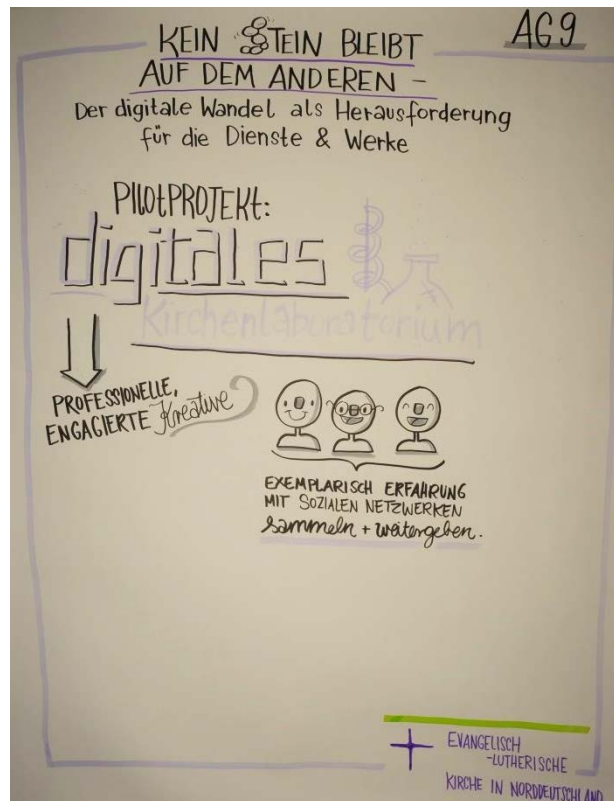 AG9
KEIN STEIN BLEIBT
AUF DEM ANDEREN –
Der digitale Wandel als Herausforderung
für die Dienste & Werke
PILOTPROJEKT:
digitales
Kirchenlaboratorium
PROFESSIONELLE,
ENGAGIERTE Kreative
EXEMPLARISCH ERFAHRUNG
MIT SOZIALEN NETZWERKEN
sammeln + weitergeben.
EVANGELISCH
-LUTHERISCHE
KIRCHE IN NORDDEUTSCHLAND